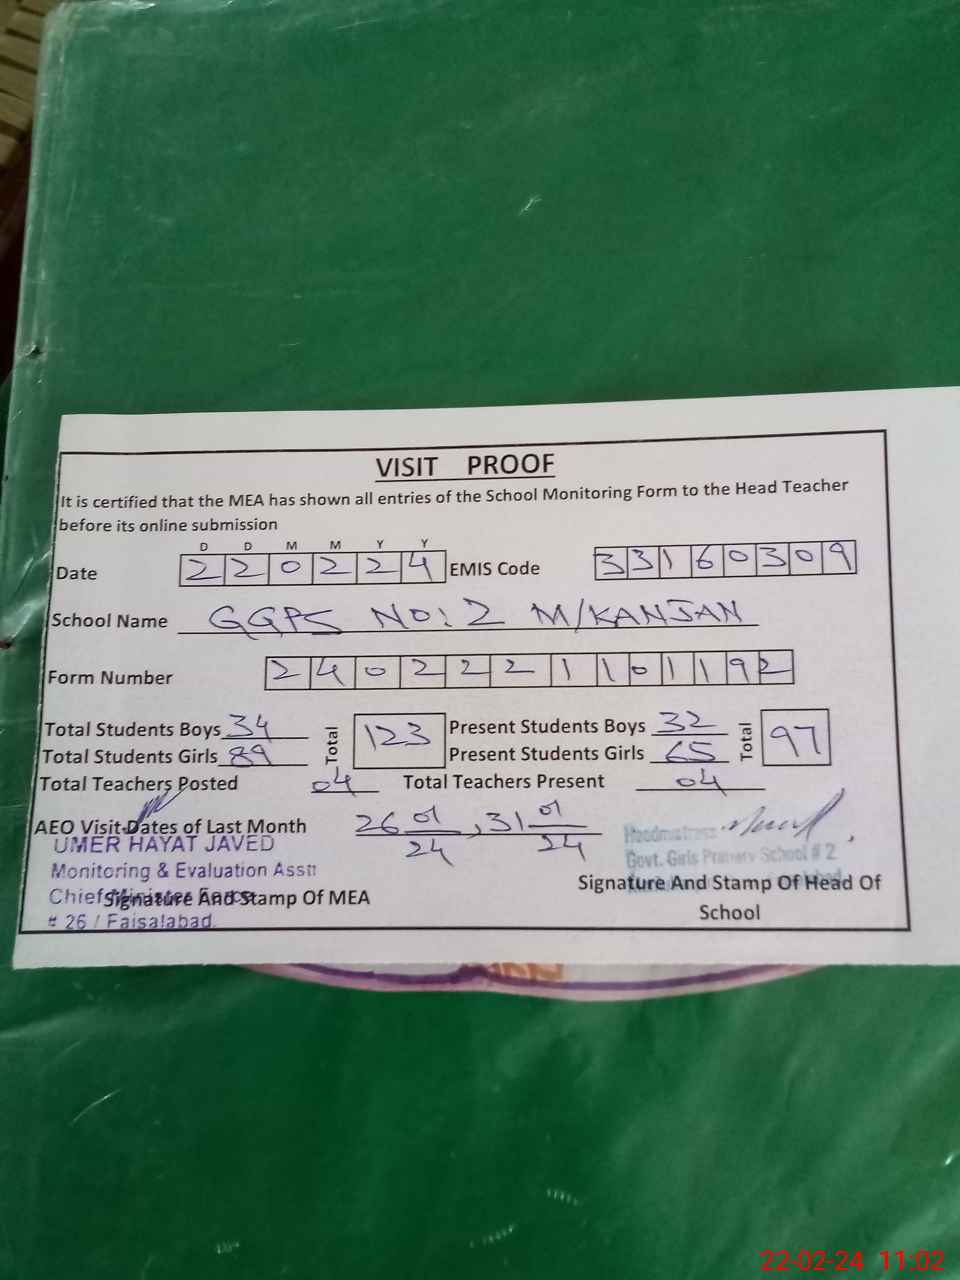 VISIT PROOF
It is certified that the MEA has shown all entries of the School Monitoring Form to the Head Teacher
before its online submission
D D M M Y Y
Date 2 2 0 2 2 4 EMIS Code 3 3 1 6 0 3 0 9
School Name GGPS NO: 2 M/KANJAN
Form Number 2 4 0 2 2 2 1 1 0 1 1 9 2
Total Students Boys 34 Total 123 Present Students Boys 32 Total 97
Total Students Girls 89 Present Students Girls 65
Total Teachers Posted 04 Total Teachers Present 04
AEO Visit Dates of Last Month 26 01/24, 31 01/24
UMER HAYAT JAVED
Monitoring & Evaluation Asstt
Chief Minister
# 26 / Faisalabad.
Signature And Stamp Of MEA
Headmistress
Govt. Girls Primary School # 2
Signature And Stamp Of Head Of
School
22-02-24 11:02